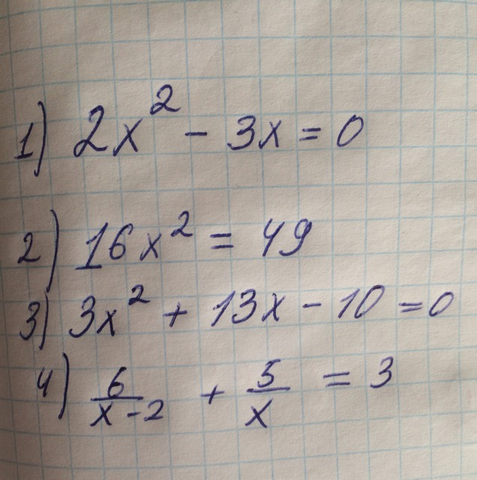 1) 2x² - 3x = 0
2) 16x² = 49
3) 3x² + 13x - 10 = 0
4) 6/(x-2) + 5/x = 3